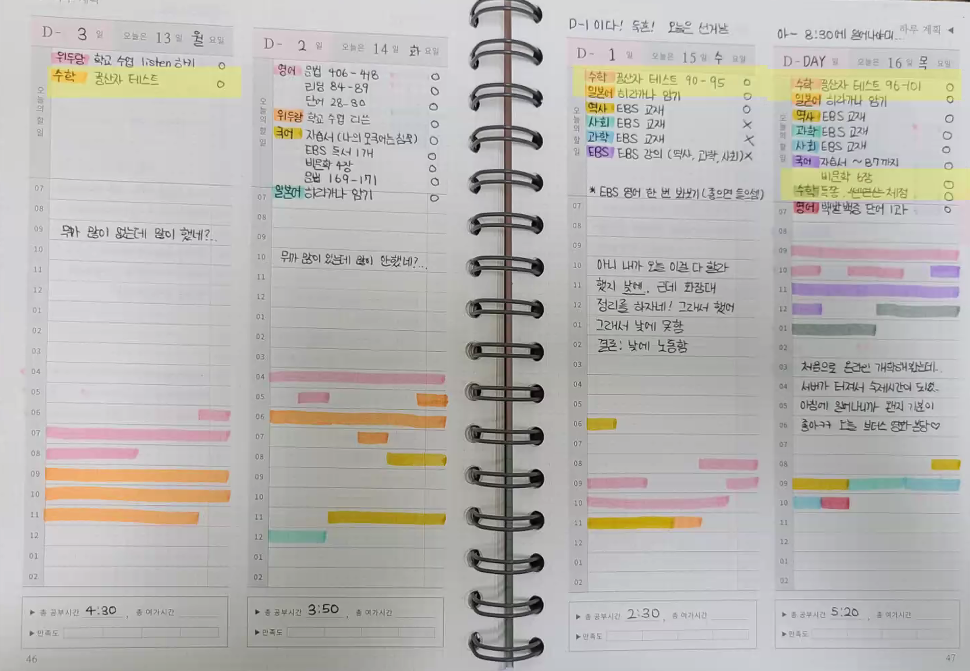 D- 3 일 오늘은 13 일 월 요일
위두랑 학교 수업 listen 하기 ○
수학 쿵산자 테스트 ○
오늘의 할 일
07
08
09 뭐가 많이 없는데 많이 했네?...
10
11
12
01
02
03
04
05
06
07
08
09
10
11
12
01
02
▶ 총 공부시간 4:30 , 총 여가시간
▶ 만족도
46
D- 2 일 오늘은 14 일 화 요일
영어 문법 406-418 ○
리딩 84-89 ○
단어 28-30 ○
위두랑 학교 수업 리쓴 ○
국어 자습서 (나의 무국어는 참욱) ○
EBS 독서 1개 ○
비문학 4장 ○
문법 169-171 ○
일본어 히라가나 암기 ○
오늘의 할 일
07
08
09
10 뭐가 많이 없는데 많이 안했네?...
11
12
01
02
03
04
05
06
07
08
09
10
11
12
01
02
▶ 총 공부시간 3:50 , 총 여가시간
▶ 만족도
D-1 이다! 오늘은 선거날
D- 1 일 오늘은 15 일 수 요일
수학 쿵산자 테스트 90-95 ○
일본어 히라가나 암기 ○
역사 EBS 교재 ○
사회 EBS 교재 X
과학 EBS 교재 X
EBS EBS 강의 (역사, 과학, 사회) X
오늘의 할 일
* EBS 영어 한 번 봐보기 (좋으면 들으셈)
07
08
09
10 아니 내가 오늘 이걸 다 할라
11 했지 낮에. 근데 화장대
12 정리를 하자네! 그래서 했어
01 그래서 낮에 못함
02 결론: 낮에 노동함
03
04
05
06
07
08
09
10
11
12
01
02
▶ 총 공부시간 2:30 , 총 여가시간
▶ 만족도
하루 계획 ◀
아~ 8:30에 일어나야대...
D-DAY 일 오늘은 16 일 목 요일
수학 쿵산자 테스트 96-101 ○
일본어 히라가나 암기 ○
역사 EBS 교재 ○
과학 EBS 교재 ○
사회 EBS 교재 ○
국어 자습서 ~87까지 ○
비문학 6장 ○
수학 쎈 채점 ○
영어 백발백중 단어 1과 ○
오늘의 할 일
07
08
09
10
11
12
01
02
03 처음으로 온라인 개학해봤는데..
04 서버가 터져서 숙제시간이 도싯..
05 아침에 일어나니까 왠지 기분이
06 좋아ㅋㅋ 오늘 보너스 영화 본당♡
07
08
09
10
11
12
01
02
▶ 총 공부시간 5:20 총 여가시간
▶ 만족도
47